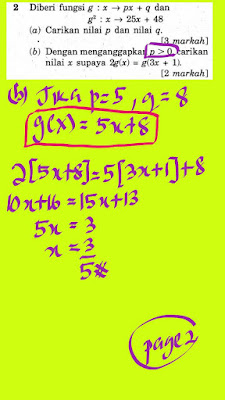 2 Diberi fungsi g : x → px + q dan
g² : x → 25x + 48
(a) Carikan nilai p dan nilai q.
[3 markah]
(b) Dengan menganggapkan p > 0, carikan
nilai x supaya 2g(x) = g(3x + 1).
[2 markah]
(b) Jika p=5, q=8
g(x) = 5x+8
2[5x+8]=5[3x+1]+8
10x+16=15x+13
5x = 3
x = 3
5
page 2